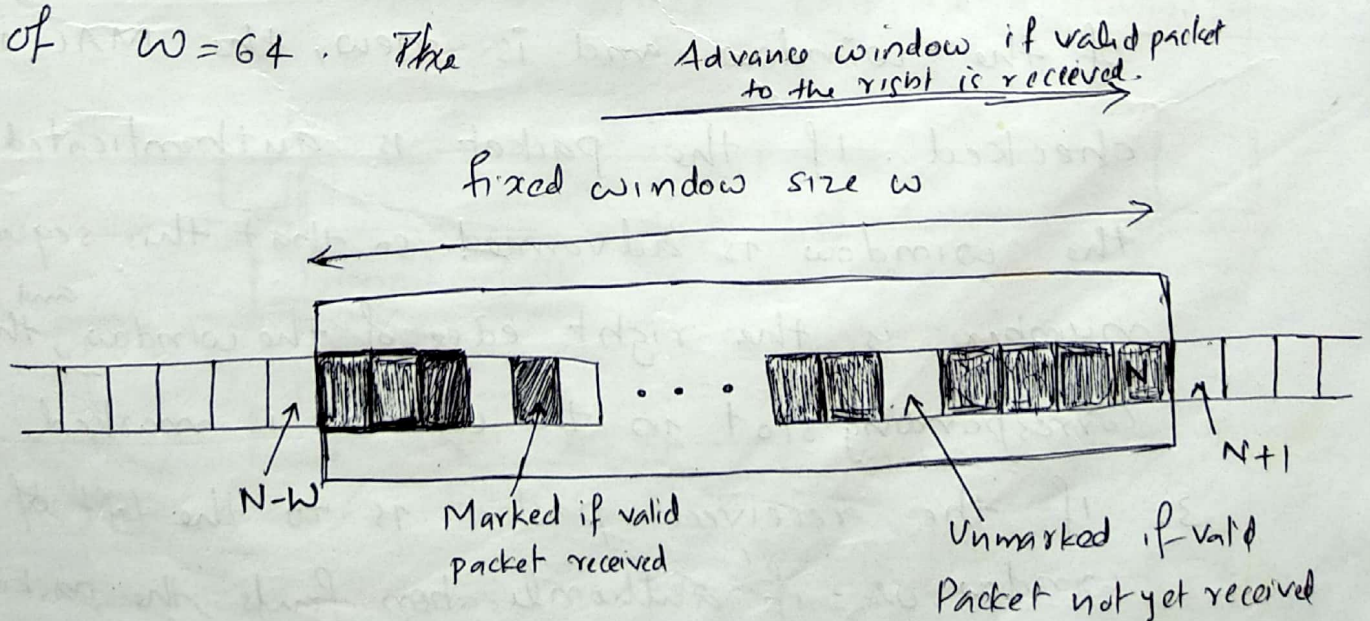 of W = 64 . The
Advance window if valid packet
to the right is received.
fixed window size w
N
N-W
N+1
Marked if valid
packet received
Unmarked if valid
Packet not yet received